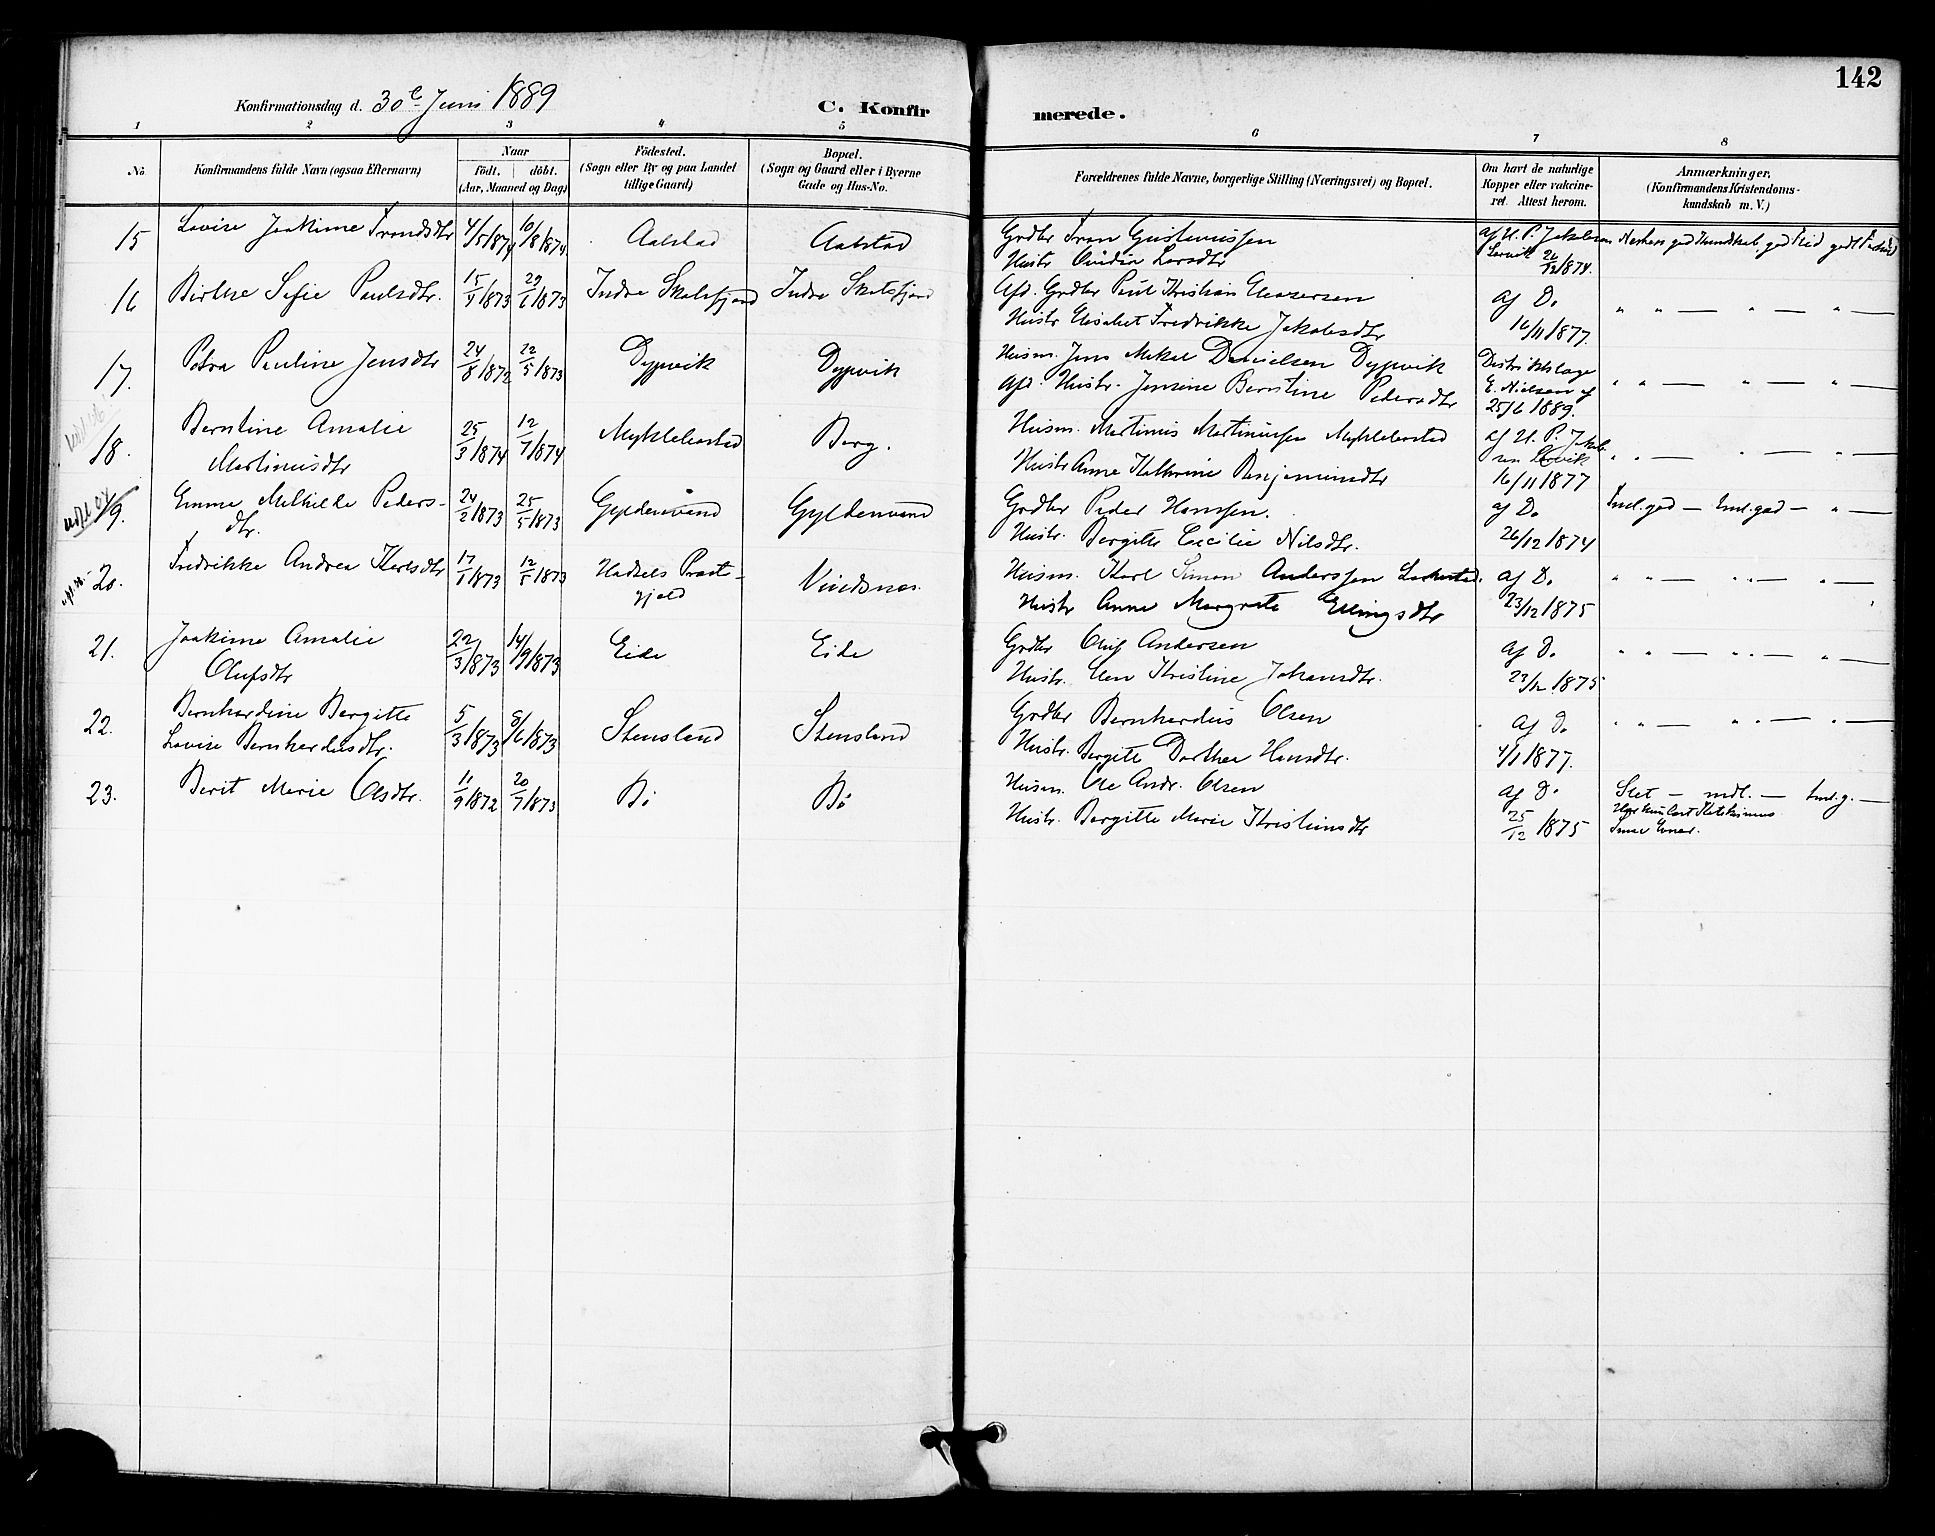 142
Konfirmationsdag d. 30te Juni 1889
C. Konfirmerede.
1 2 3 4 5 6 7 8
No
Konfirmandens fulde Navn (ogsaa Efternavn)
Naar
födt. döbt.
(Aar, Maaned og Dag)
Födested.
(Sogn eller By og paa Landet
tillige Gaard)
Bopæl.
(Sogn og Gaard eller i Byerne
Gade og Hus-No.
Forældrenes fulde Navne, borgerlige Stilling (Næringsvei) og Bopæl.
Om havt de naturlige
Kopper eller vakcine-
ret. Attest herom.
Anmærkninger.
(Konfirmandens Kristendoms-
kundskab m. V.)
15 Lovise Joakime Transdtr 4/5 1874 10/8 1874 Aalstad Aalstad Grdbr Tran Gustavussen af H. P. Jakobsen
Hustr Larsdtr 26/12 1874.
16 Birthe Sofie Paulsdtr. 15/4 1873 29/6 1873 Indre Skotsfjord Indre Skotsfjord Afd. Grdbr Paul Kristian Eleasersen af Do
Hustr Elisabet Fredrikke Jakobsdtr 16/11 1877.
17. Petra Pauline Jensdtr 24/8 1872 22/5 1873 Dypvik Dypvik Husm. Jens Mikal Danielsen Dypvik Distriktslæge
afd. Hustr. Jensine Berntine Pedersdtr E. Nielsen af
25/6 1889.
18. Berntine Amalie 25/3 1874 12/7 1874 Myklebostad Borg. Husm. Martinus Martinussen Myklebostad af H. P. Jakob-
Martinusdtr Hustr Anne Kathrine Benjaminsdtr sen
16/11 1877
19. Emma Mathilde Peders- 24/2 1873 25/5 1873 Gyldenvand Gyldenvand Grdbr Peder Hanssen. af Do
dtr. Hustr. Bergitte Cecilie Nilsdtr. 26/12 1874
20. Fredrikke Andrea Karlsdtr 17/1 1873 12/5 1873 Hadsels Præst- Vindsnes Husm. Karl Simon Anderssen af Do
gjeld Hustr Anne Margrete Ellingsdtr 23/12 1875
21. Joakime Amalie 22/3 1873 14/9 1873 Eide Eide Grdbr Oluf Andersen af Do
Olufsdtr Hustr. Elen Kristine Johansdtr. 23/12 1875
22. Bernhardine Bergitte 5/3 1873 8/6 1873 Stensland Stensland Grdbr Bernhardus Olsen af Do
Lovise Bernhardusdtr. Hustr. Bergitte Dorthea Hansdtr. 4/1 1877.
23. Berit Marie Olsdtr. 11/9 1872 20/7 1873 Bö Bö Husm. Ole Andr. Olsen af Do Slet – mdl. – – 
Hustr. Bergitte Marie Kristiansdtr 25/12 1875